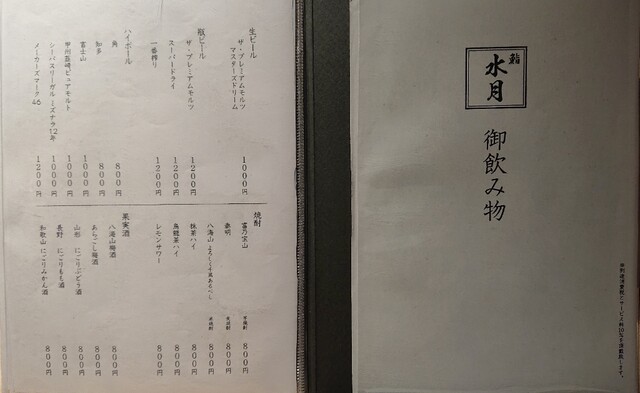 鮨
水月
御飲み物
生ビール
ザ・プレミアムモルツ
マスターズドリーム 1000円
瓶ビール
ザ・プレミアムモルツ 1200円
スーパードライ 1200円
一番搾り 1200円
ハイボール
角 800円
知多 800円
富士山 1000円
甲州韮崎ピュアモルト 1000円
シーバスリーガル ミズナラ12年 1000円
メーカーズマーク46 1200円
焼酎
富乃宝山 芋焼酎 800円
兼明 800円
八海山 よろしく千萬あるべし 米焼酎 800円
抹茶ハイ 800円
烏龍茶ハイ 800円
レモンサワー 800円
果実酒
八海山梅酒 800円
あらごし梅酒 800円
山形 にごりぶどう酒 800円
長野 にごりもも酒 800円
和歌山 にごりみかん酒 800円